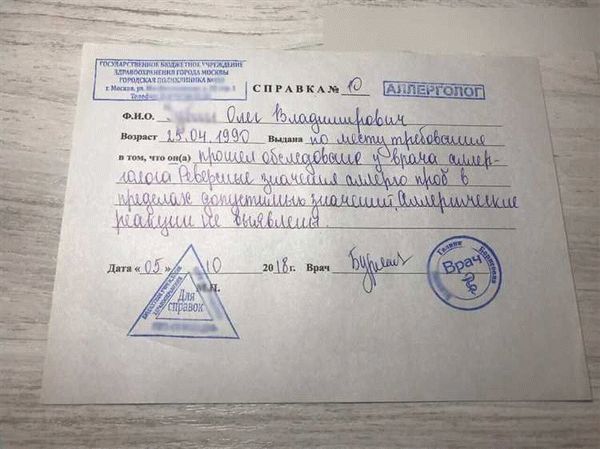 ГОСУДАРСТВЕННОЕ БЮДЖЕТНОЕ УЧРЕЖДЕНИЕ
ЗДРАВООХРАНЕНИЯ ГОРОДА МОСКВЫ
ГОРОДСКАЯ ПОЛИКЛИНИКА №
г. Москва, ул.
Телефон
СПРАВКА № 10
АЛЛЕРГОЛОГ
Ф.И.О. Олег Владимирович
Возраст 25.04.1990 Выдана по месту требования
в том, что он(а) прошел обследование у врача аллер-
голога Реверсные значения аллерго проб в
пределах допустимых значений. Аллергические
реакции не выявлены.
Дата «05» 10 2018г. Врач
М.П.
Для
справок
ЗДРАВООХРАНЕНИЯ
Галина Борисовна
Врач